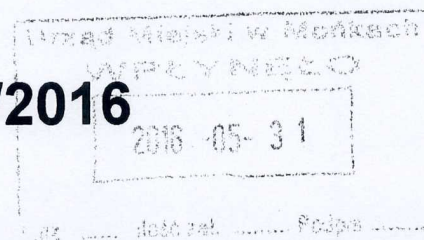 Urząd Miejski w Mońkach
WPŁYNĘŁO
/2016
2016 -05- 31
ilość zał. ........ Podpis ........